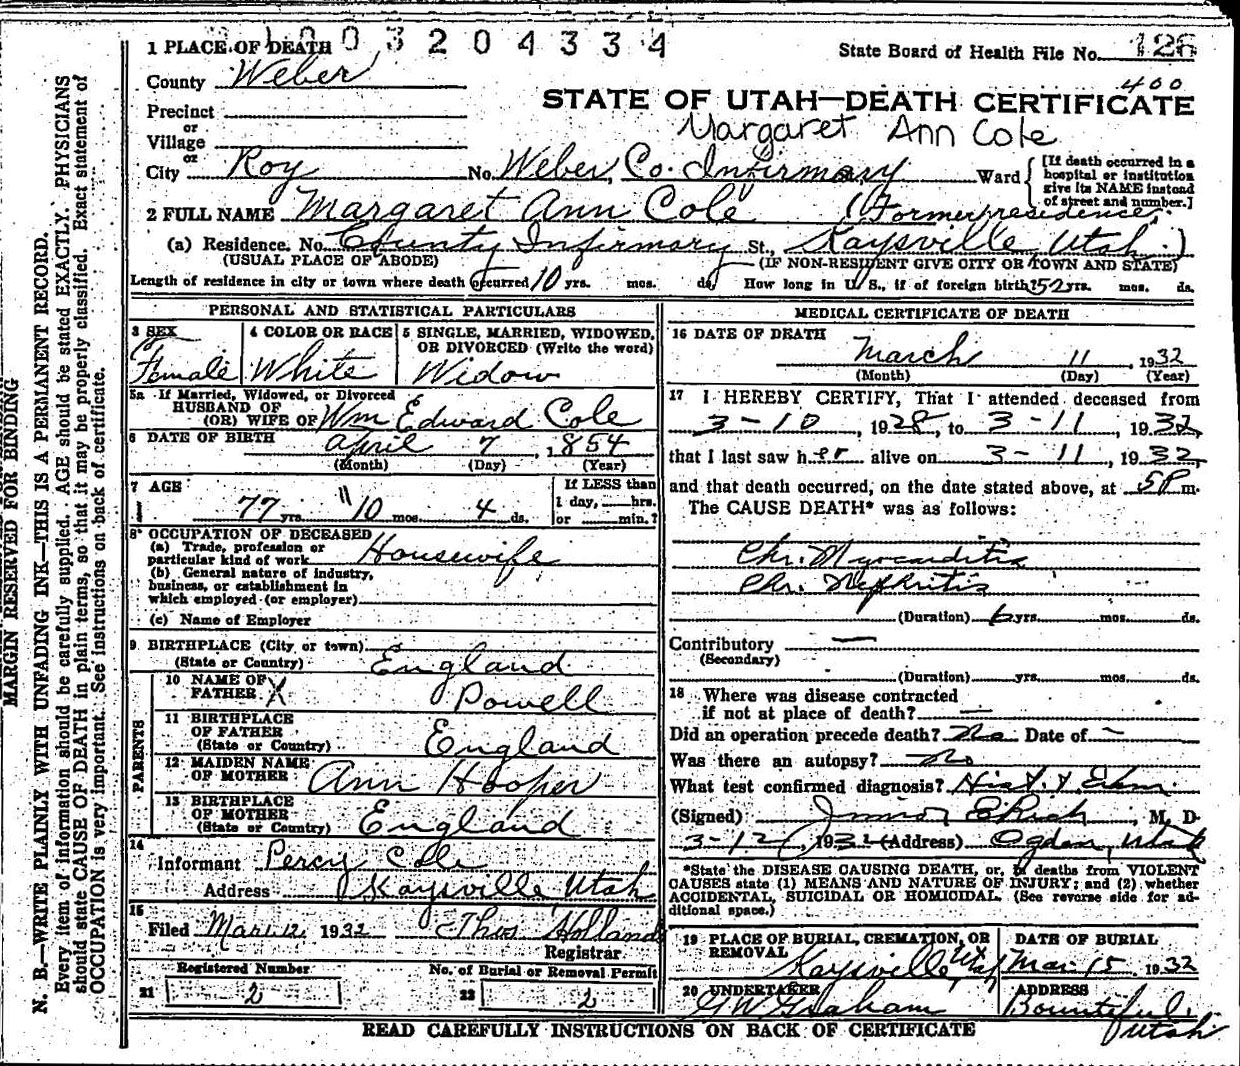 1 PLACE OF DEATH 0 0 3 2 0 4 3 3 4
State Board of Health File No. 126
County Weber
400
STATE OF UTAH—DEATH CERTIFICATE
Precinct
or
Village
Margaret Ann Cole
or
City Roy No. Weber, Co. Infirmary Ward
[If death occurred in a hospital or institution give its NAME instead of street and number.]
2 FULL NAME Margaret Ann Cole (Former residence,
(a) Residence. No. County Infirmary St., Kaysville Utah.)
(USUAL PLACE OF ABODE) (IF NON-RESIDENT GIVE CITY OR TOWN AND STATE)
Length of residence in city or town where death occurred 10 yrs. mos. ds. How long in U. S., if of foreign birth? 52 yrs. mos. ds.
PERSONAL AND STATISTICAL PARTICULARS
3 SEX
Female
4 COLOR OR RACE
White
5 SINGLE, MARRIED, WIDOWED, OR DIVORCED (Write the word)
Widow
5a If Married, Widowed, or Divorced
HUSBAND OF
(OR) WIFE OF Wm Edward Cole
6 DATE OF BIRTH April 7, 1854
(Month) (Day) (Year)
7 AGE
77 yrs. 10 mos. 4 ds.
If LESS than
1 day, hrs.
or min.?
8 OCCUPATION OF DECEASED
(a) Trade, profession or
particular kind of work Housewife
(b) General nature of industry,
business, or establishment in
which employed (or employer)
(c) Name of Employer
9 BIRTHPLACE (City or town)
(State or Country) England
PARENTS
10 NAME OF
FATHER X Powell
11 BIRTHPLACE
OF FATHER
(State or Country) England
12 MAIDEN NAME
OF MOTHER Ann Hooper
13 BIRTHPLACE
OF MOTHER
(State or Country) England
14
Informant Percy Cole
Address Kaysville Utah
15
Filed Mar. 12, 1932 Thos Holland
Registrar
Registered Number
21 2
No. of Burial or Removal Permit
22 2
MEDICAL CERTIFICATE OF DEATH
16 DATE OF DEATH
March 11 1932
(Month) (Day) (Year)
17 I HEREBY CERTIFY, That I attended deceased from
3-10, 1928, to 3-11, 1932,
that I last saw her alive on 3-11, 1932,
and that death occurred, on the date stated above, at 5P m.
The CAUSE DEATH* was as follows:
Chr. Myocarditis
Chr. Nephritis
(Duration) 6 yrs. mos. ds.
Contributory —
(Secondary)
(Duration) yrs. mos. ds.
18 Where was disease contracted
if not at place of death? —
Did an operation precede death? No Date of —
Was there an autopsy? No
What test confirmed diagnosis? Hist. & Exam
(Signed) Junior E Rich, M. D.
3-12, 1932 (Address) Ogden, Utah
*State the DISEASE CAUSING DEATH, or, in deaths from VIOLENT
CAUSES state (1) MEANS AND NATURE OF INJURY; and (2) whether
ACCIDENTAL, SUICIDAL OR HOMICIDAL. (See reverse side for ad-
ditional space.)
19 PLACE OF BURIAL, CREMATION, OR
REMOVAL
Kaysville, Utah
DATE OF BURIAL
Mar. 15 1932
20 UNDERTAKER
G W Graham
ADDRESS
Bountiful.
Utah
READ CAREFULLY INSTRUCTIONS ON BACK OF CERTIFICATE
MARGIN RESERVED FOR BINDING
N. B.—WRITE PLAINLY WITH UNFADING INK—THIS IS A PERMANENT RECORD.
Every item of information should be carefully supplied. AGE should be stated EXACTLY. PHYSICIANS
should state CAUSE OF DEATH in plain terms, so that it may be properly classified. Exact statement of
OCCUPATION is very important. See instructions on back of certificate.